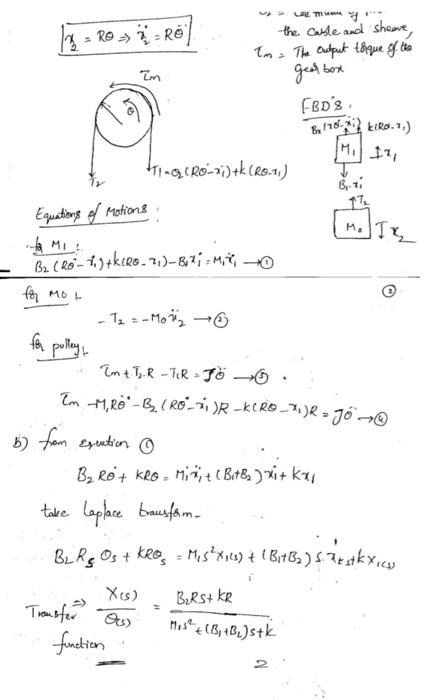 x₂ = Rθ ⇒ ẍ₂ = Rθ̈
the cable and sheave,
τm = The output torque of the
gear box
τm
θ
T₂
T₁ = B₂(Rθ̇ - ẋ₁) + k(Rθ - x₁)
FBD'S
B₂(Rθ̇ - ẋ₁) k(Rθ - x₁)
M₁ x₁
B₁ẋ₁
T₂
M₀ x₂
Equations of Motions :
for M₁ :
B₂(Rθ̇ - ẋ₁) + k(Rθ - x₁) - B₁ẋ₁ = M₁ẍ₁ → ①
②
for M₀ :
- T₂ = -M₀ẍ₂ → ②
for pulley :
τm + T₂R - T₁R = Jθ̈ → ③
τm - M₁Rθ̈ - B₂(Rθ̇ - ẋ₁)R - k(Rθ - x₁)R = Jθ̈ → ④
b) from equation ①
B₂Rθ̇ + KRθ = M₁ẍ₁ + (B₁+B₂)ẋ₁ + kx₁
take laplace transform -
B₂RsθS + KRθS = M₁s²X₁(s) + (B₁+B₂)s X₁(s) + kX₁(s)
Transfer ⇒ X(s)/θ(s) = B₂RS + KR / M₁s² + (B₁+B₂)s + k
function
2